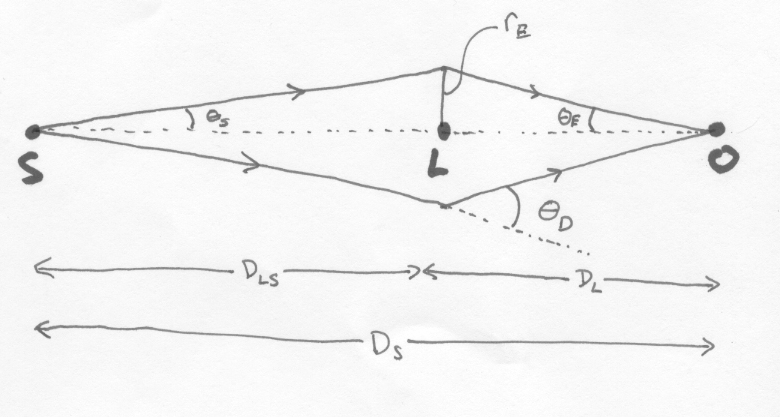 r_E
θ_S
θ_E
S
L
O
θ_D
D_LS
D_L
D_S